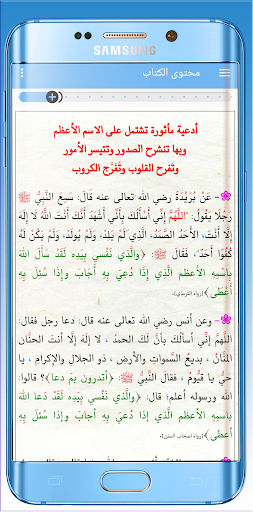 SAMSUNG
محتوى الكتاب
أدعية مأثورة تشتمل على الاسم الأعظم
وبها تنشرح الصدور وتتيسر الأمور
وتَفرح القلوب وتُفَرَّج الكروب
- عَنْ بُرَيْدَةَ رضي الله تعالى عنه قَالَ: سَمِعَ النَّبِيُّ ﷺ
رَجُلًا يَقُولُ: "اللَّهُمَّ إِنِّي أَسْأَلُكَ بِأَنِّي أَشْهَدُ أَنَّكَ أَنْتَ اللَّهُ لَا إِلَهَ
إِلَّا أَنْتَ، الأَحَدُ الصَّمَدُ، الَّذِي لَمْ يَلِدْ، وَلَمْ يُولَدْ، وَلَمْ يَكُنْ لَهُ
كُفُوًا أَحَدٌ"، فَقَالَ: ﷺ: ﴿وَالَّذِي نَفْسِي بِيَدِهِ لَقَدْ سَأَلَ اللَّهَ
بِاسْمِهِ الأَعْظَمِ الَّذِي إِذَا دُعِيَ بِهِ أَجَابَ وَإِذَا سُئِلَ بِهِ
أَعْطَى﴾ (رواه الترمذي).
- وعن أنس رضي الله تعالى عنه قال: دعا رجل فقال:
اللَّهُمَّ إِنِّي أَسْأَلُكَ بأَنَّ لَكَ الحمدُ ، لا إِلَهَ إِلَّا أنتَ الحنَّان
المَنَّانُ ، بديع السَّمواتِ والأرضِ ، ذو الجلالِ والإكرامِ ، يا
حيُّ يا قَيُّومُ ، فقال النَّبِيُّ ﷺ: ﴿أتدرون بمَ دعا﴾؟ قالوا:
الله ورسوله أعلم؛ قال: ﴿والذي نفسي بيده لَقَدْ دَعَا اللهَ
باسمِهِ الأعظم الَّذِي إِذَا دُعِيَ بِهِ أَجَابَ وَإِذَا سُئِلَ بِهِ
أَعْطَى﴾ (رواه أصحاب السنن).